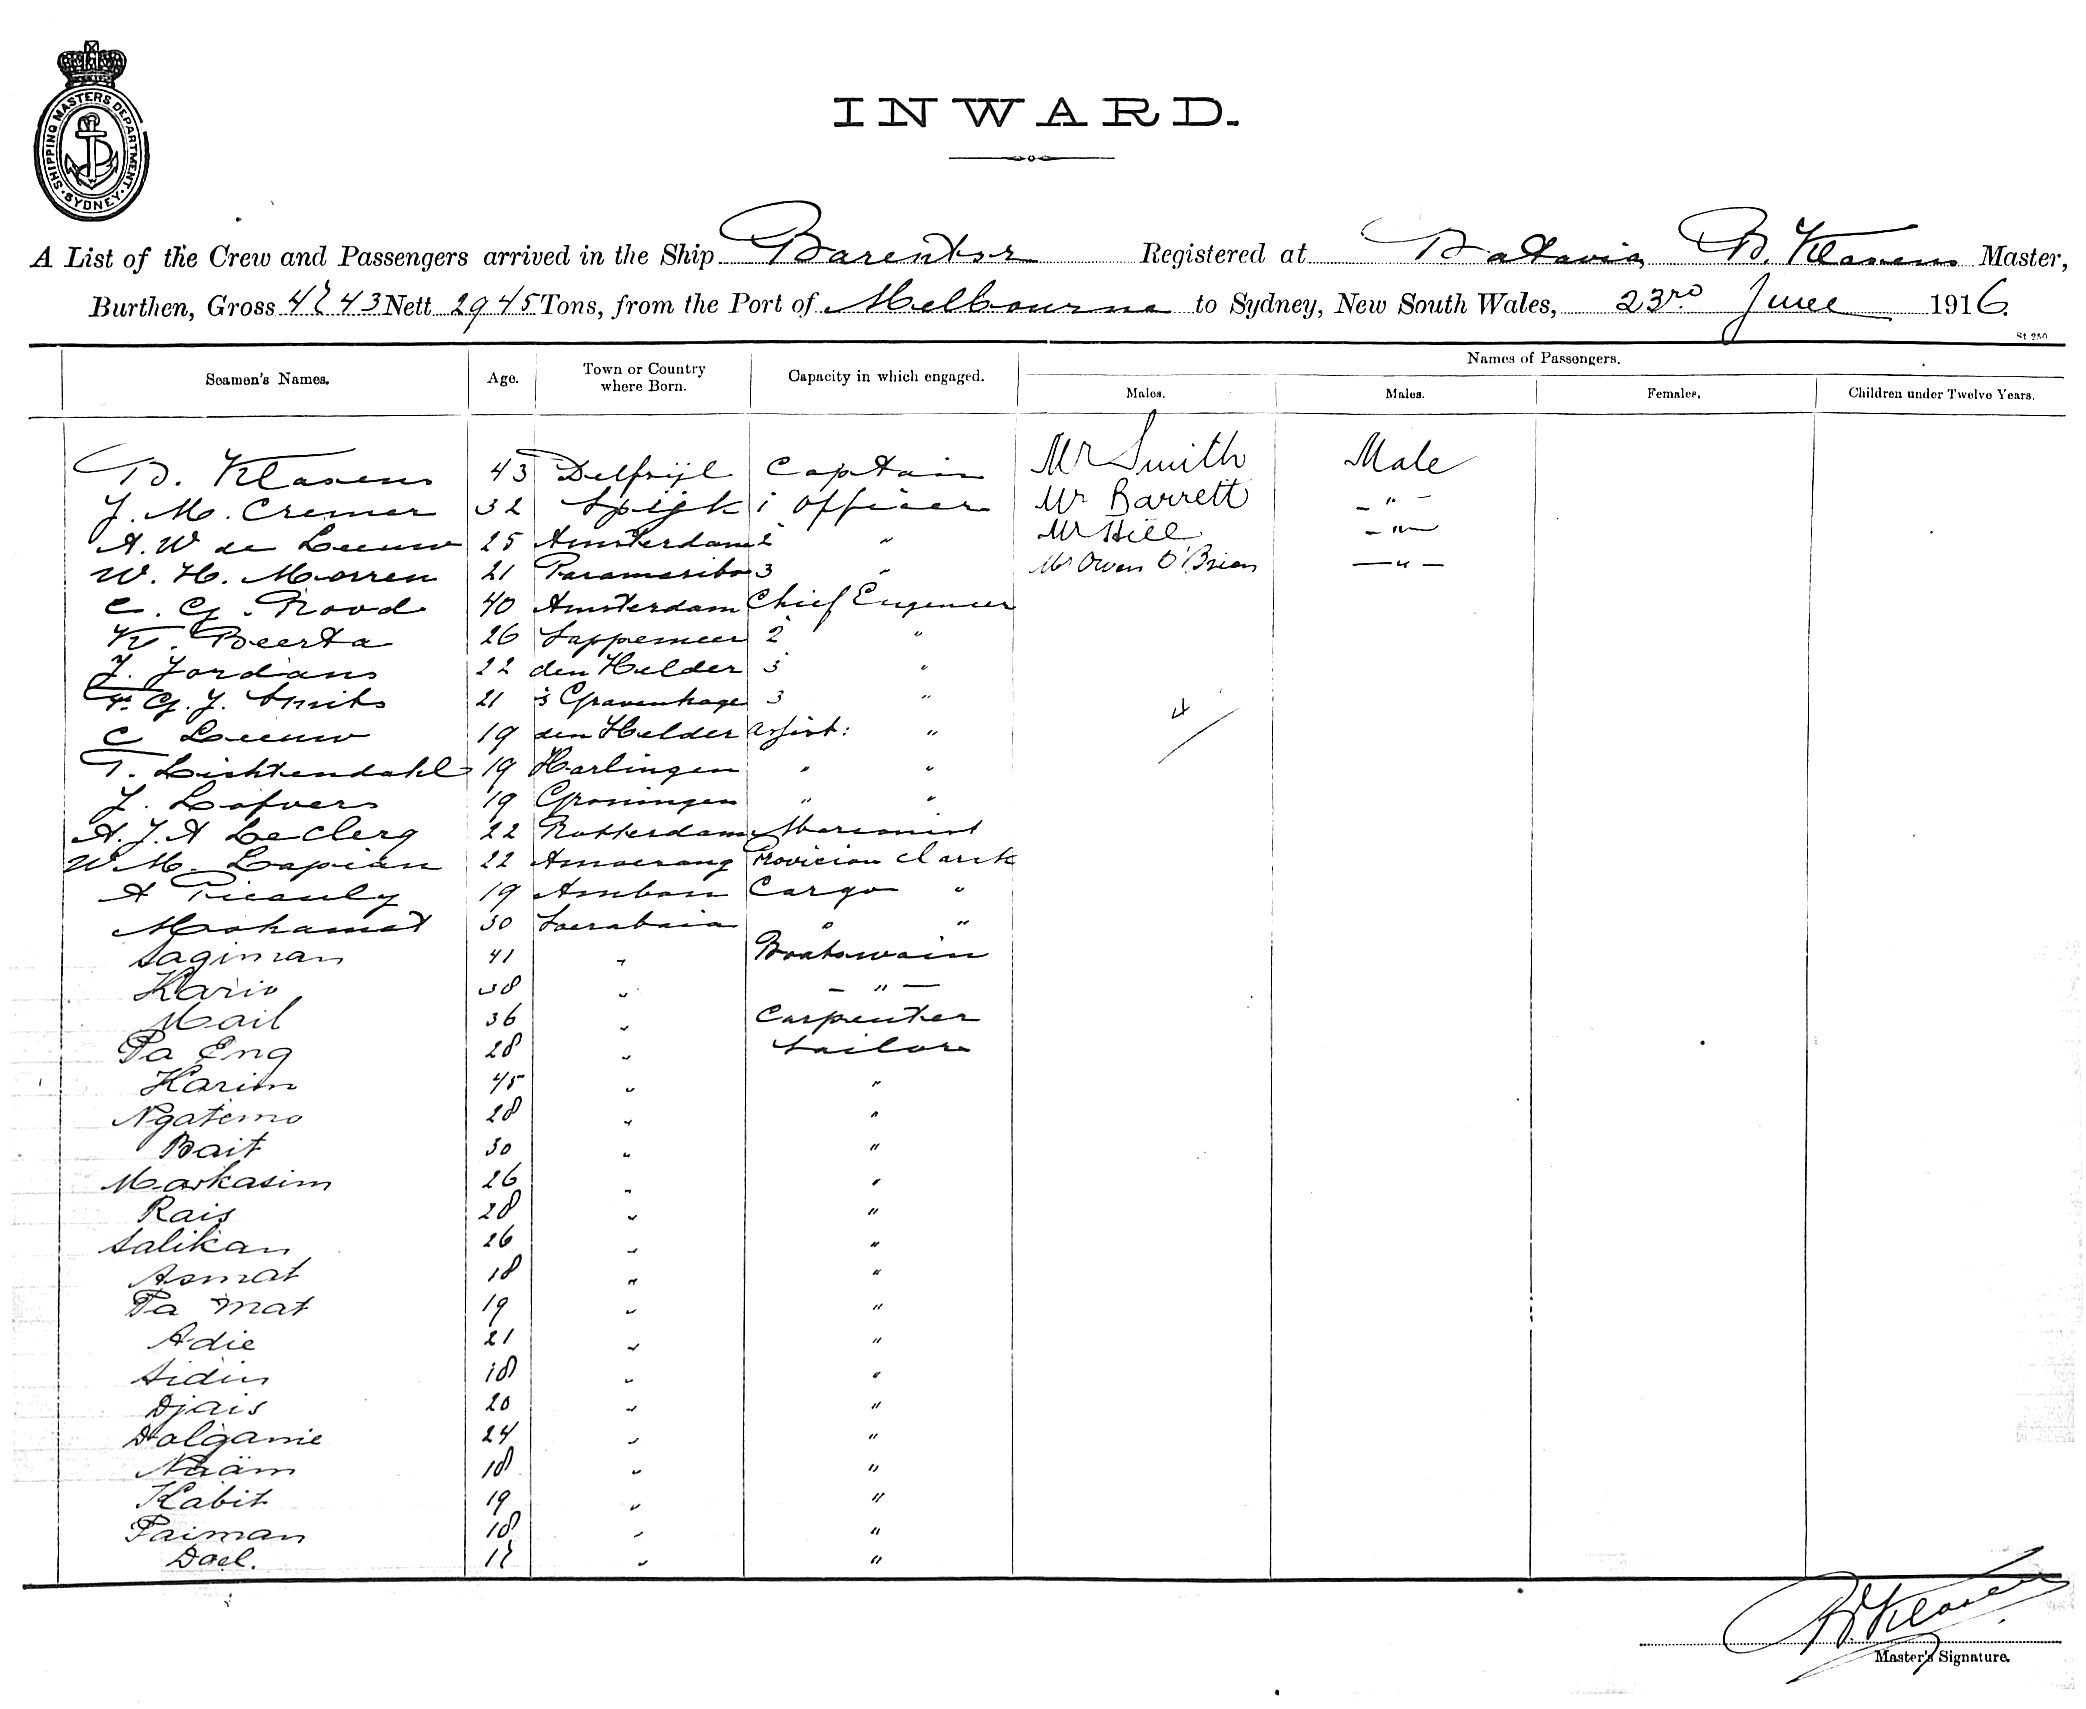 SHIPPING MASTERS DEPARTMENT
SYDNEY
INWARD.
A List of the Crew and Passengers arrived in the Ship Barentsz Registered at Batavia B. Klasens Master,
Burthen, Gross 4743 Nett 2945 Tons, from the Port of Melbourne to Sydney, New South Wales, 23rd June 1916.
St 250
Names of Passengers.
Seamen's Names. Age. Town or Country where Born. Capacity in which engaged. Males. Males. Females. Children under Twelve Years.
B. Klasens 43 Delfzijl Captain Mr Smith Male
J. M. Cremer 32 Spijk 1 Officer Mr Barrett - " -
A. W de Leeuw 25 Amsterdam 2 " Mr Hill - " -
W. H. Morren 21 Paramaribo 3 " Mr Owen O'Brien - " -
C. G. Rood 40 Amsterdam Chief Engeneer
K. Beerta 26 Sappemeer 2 "
J. Jordans 22 den Helder 3 "
F. G. J. Smits 21 's Gravenhage 3 "
C Leeuw 19 den Helder Assist: "
T. Lichtendahl 19 Harlingen " "
J. Lofvers 19 Groningen " "
A. J. A Le Clerq 22 Rotterdam Marconist
W M. Lapian 22 Amoerang Provicion Clark
A Picauly 19 Ambon Cargo "
Mohamat 30 Soerabaia " "
Sagiman 41 " Boatswain
Kario 38 " - " -
Mail 36 " Carpenter
Pa Eng 28 " Sailor
Karim 45 " "
Ngatemo 28 " "
Bait 30 " "
Markasim 26 " "
Rais 28 " "
Salikan 26 " "
Asmat 18 " "
Pa mat 19 " "
Adie 21 " "
Sidin 18 " "
Djais 20 " "
Dolganie 24 " "
Naäm 18 " "
Kabit 19 " "
Paiman 18 " "
Doel. 17 " "
B. Klasens
Master's Signature.